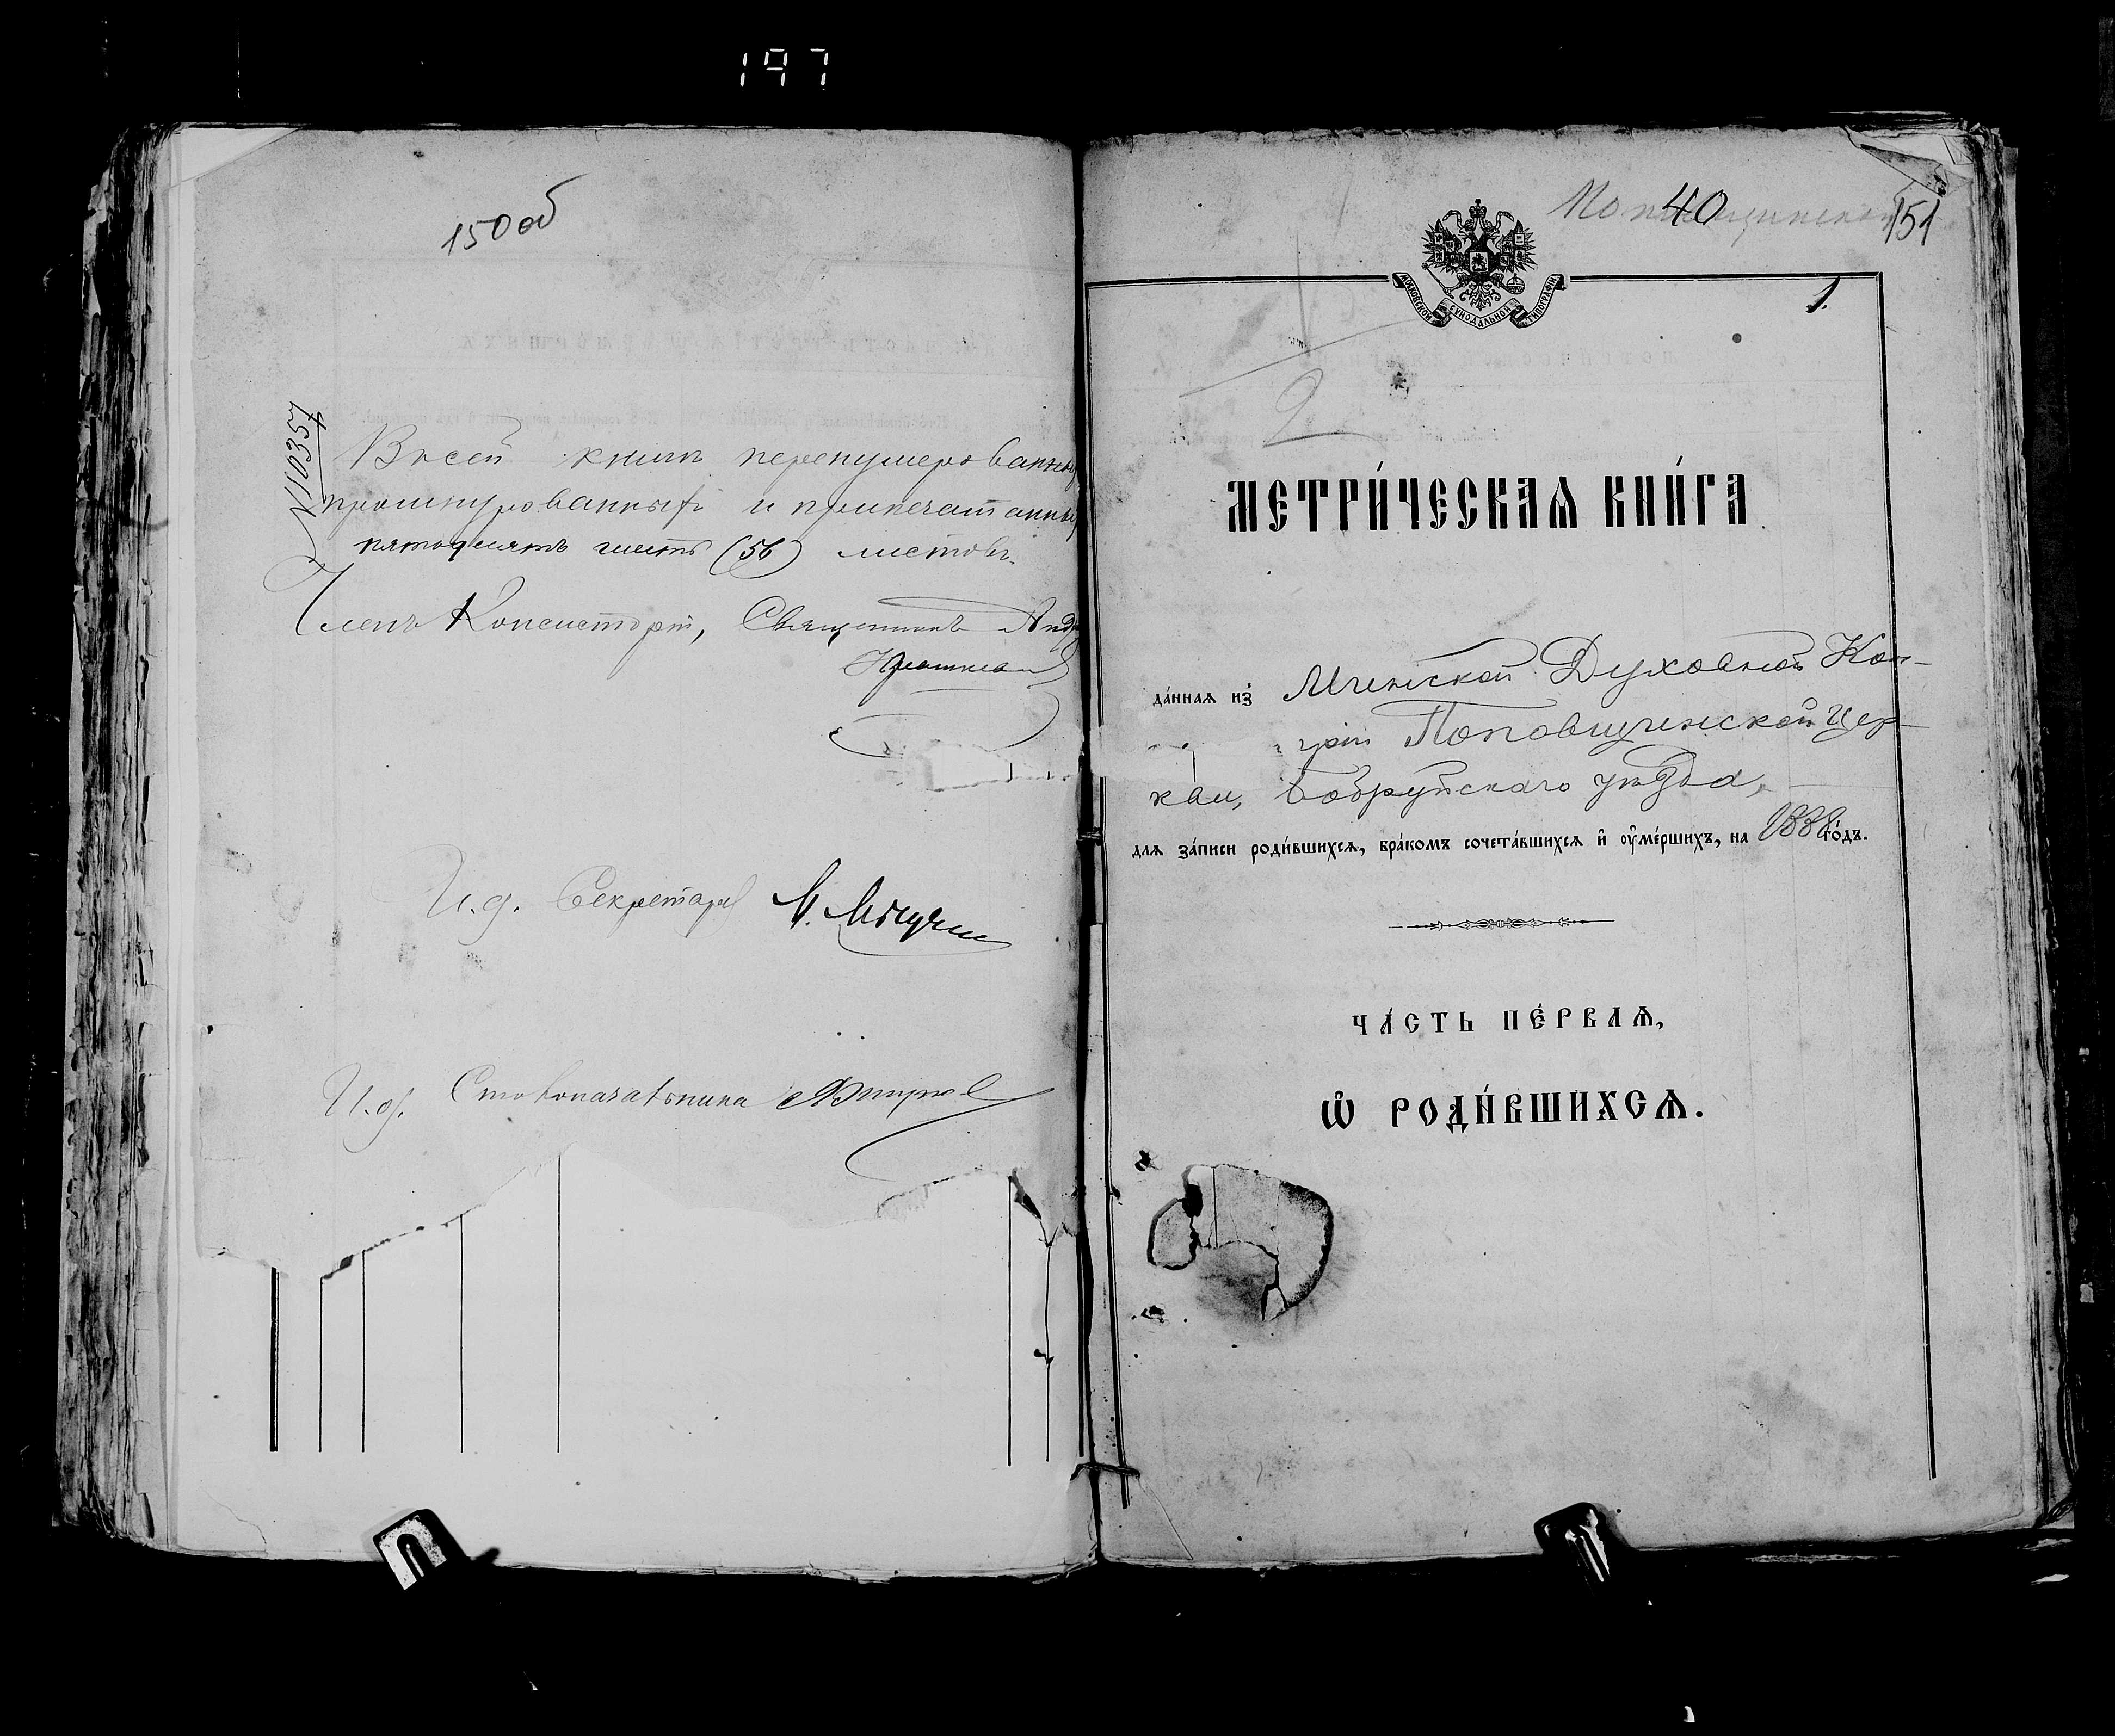 197
150 об
№ 10357
В сей книгѣ перенумерованныхъ
прошнурованныхъ и припечатанныхъ
пятьдесятъ шесть (56) листовъ.
Членъ Консисторіи, Священникъ
И. д. Секретаря
И. д. Столоначальника
40
151
МОСКОВСКОЙ СѴНОДАЛЬНОЙ ТИПОГРАФІИ
1.
2
МЕТРИ́ЧЕСКАѦ КНИ́ГА
да́ннаѧ из̾ Минской Духовной Кон-
ріи Поповщинской Цер-
кви, Бобруйскаго уѣзда,
длѧ за́писи роди́вшихсѧ, бра́комъ сочета́вшихсѧ и҆ оу҆ме́ршихъ, на 1888 го́дъ.
ЧА́СТЬ ПЕ́РВАѦ,
Ѽ РОДИ́ВШИХСѦ.